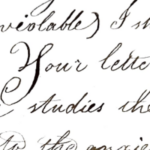 violable) I
Your lette
studies the
to the